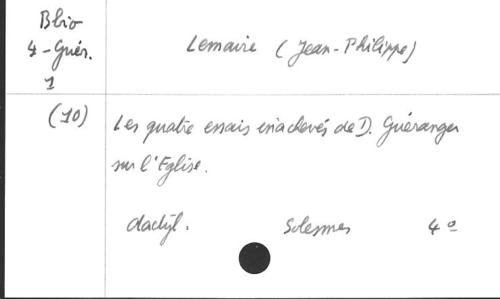 Bbio
4-Guér.
1
Lemaire (Jean-Philippe)
(10)
Les quatre essais inachevés de D. Guéranger
sur l'Eglise.
dactyl. Solesmes 4º